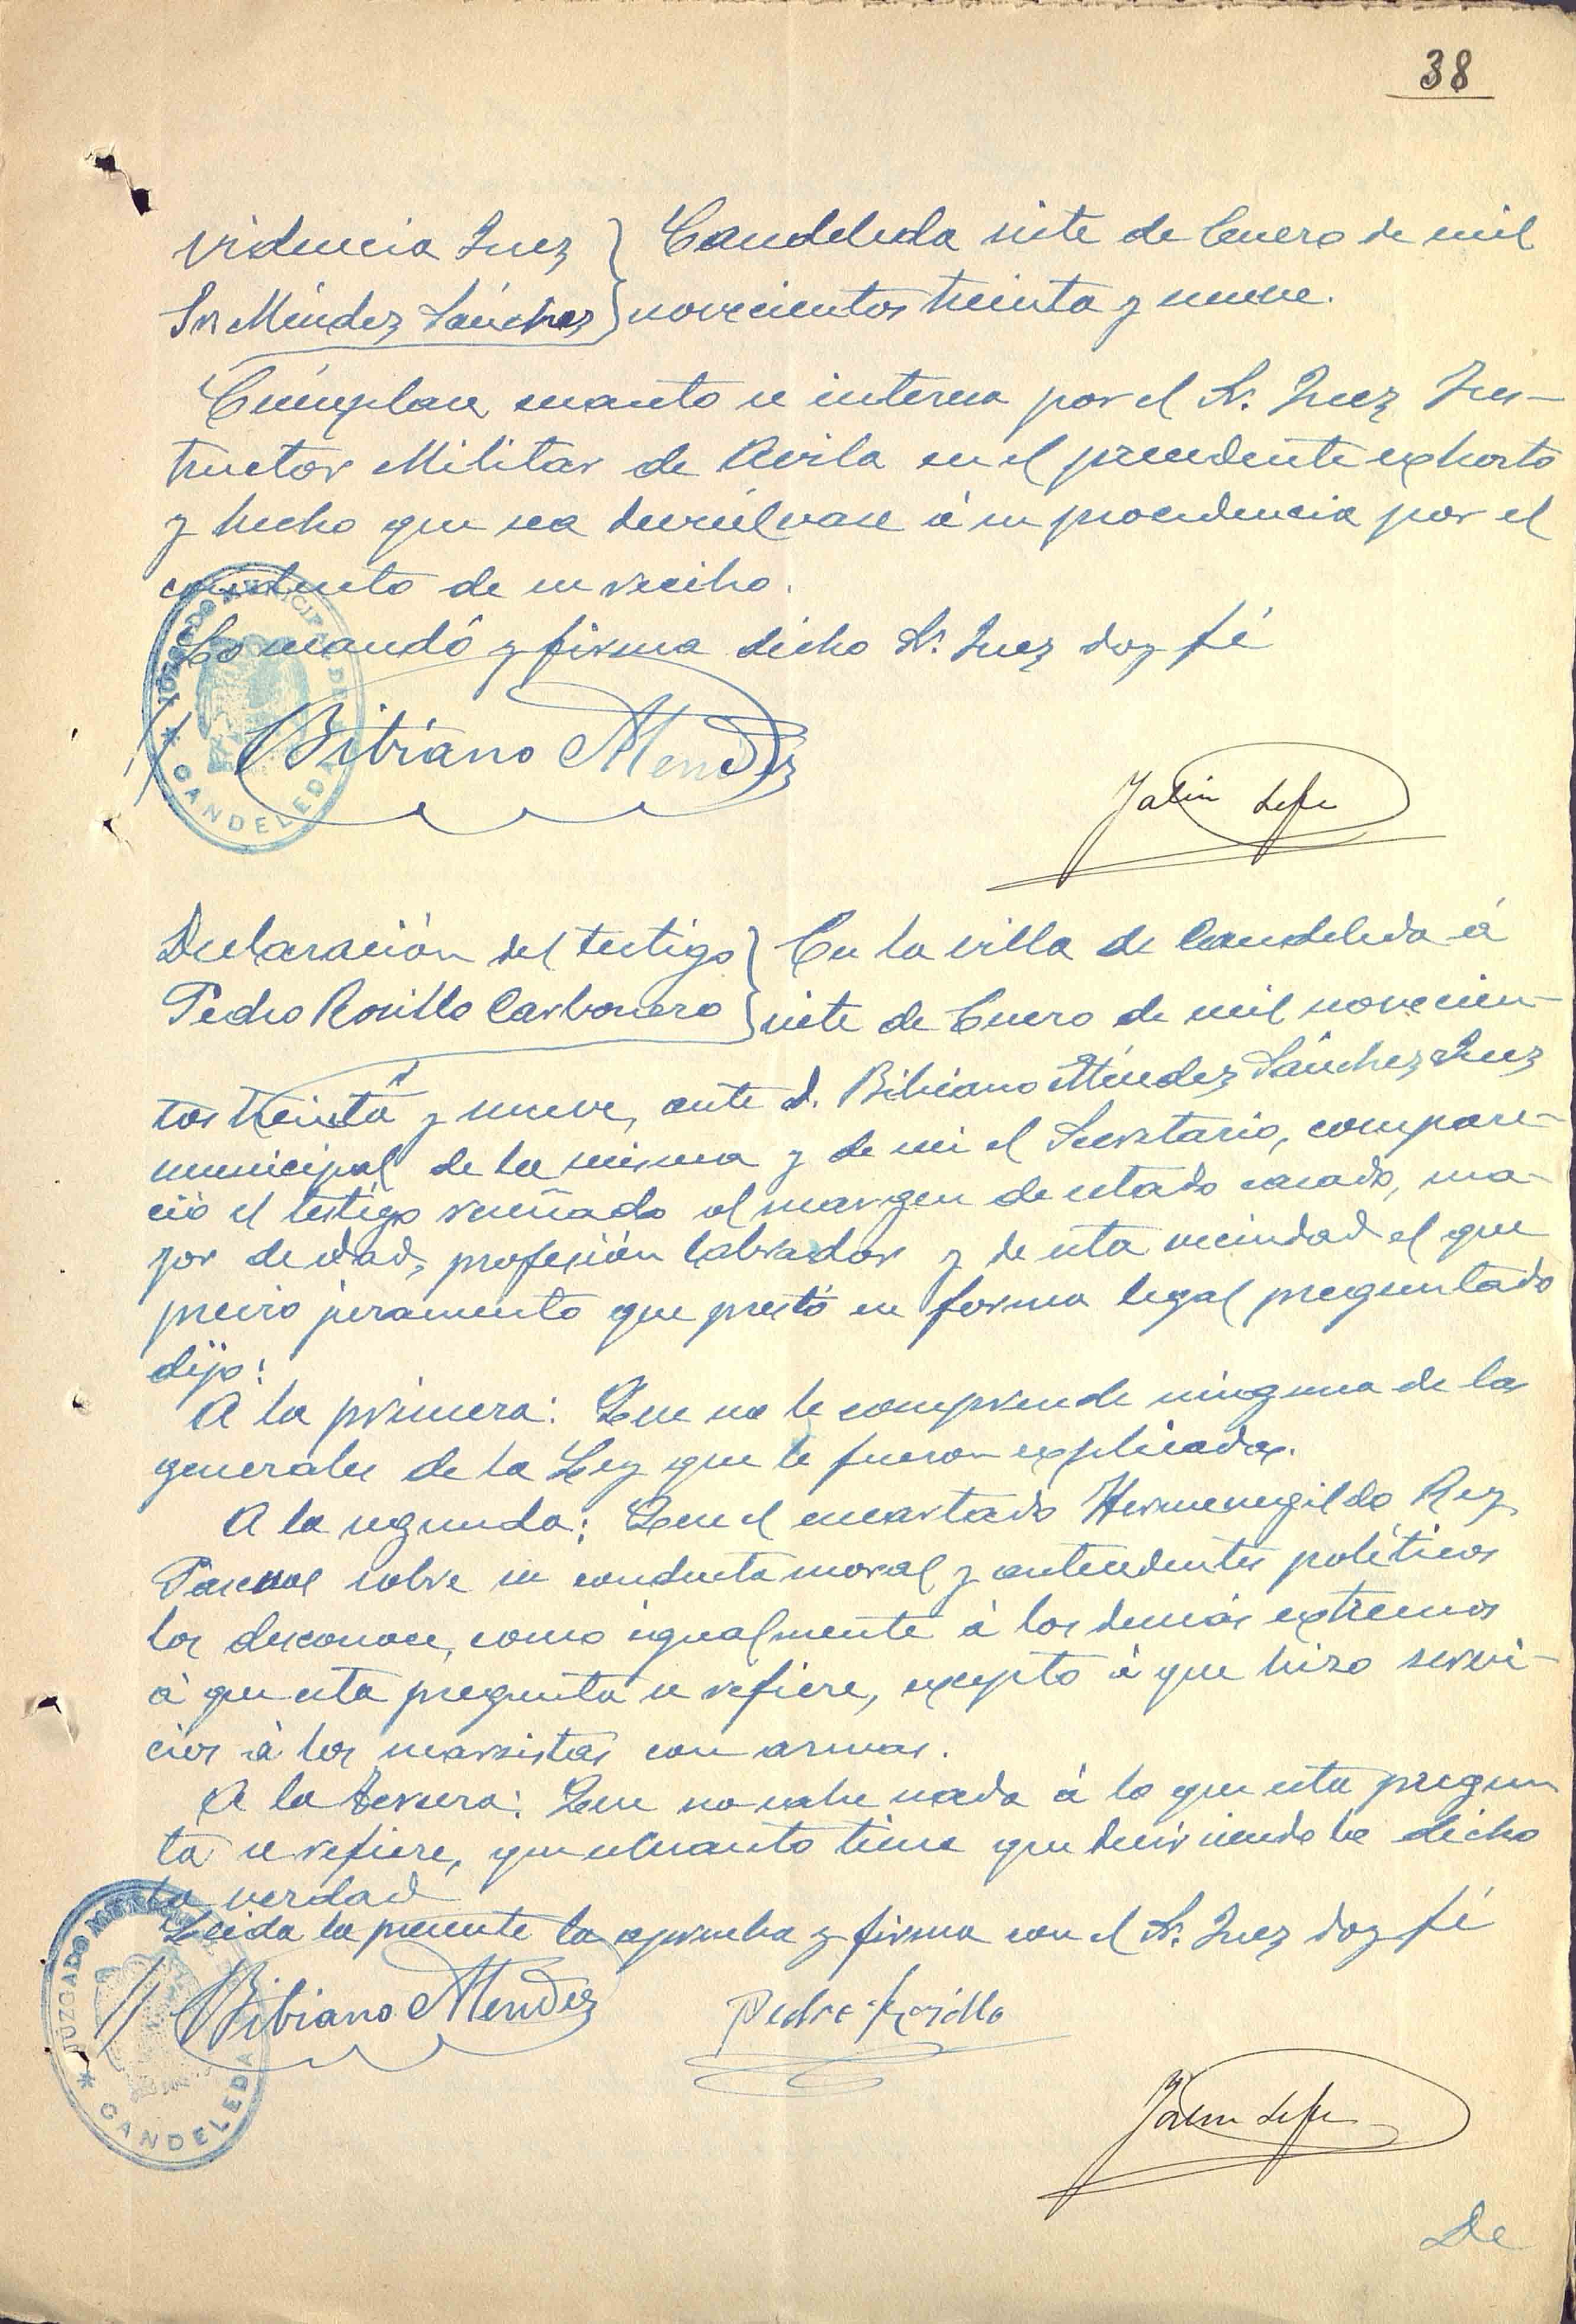 38
videncia Juez } Candeleda siete de Enero de mil
Sr Méndez Sánchez } novecientos treinta y nueve.
Cúmplase cuanto se interesa por el Sr. Juez Ins-
tructor Militar de Avila en el precedente exhorto
y hecho que sea devuélvase á su procedencia por el
conducto de su recibo.
Lo mandó y firma dicho Sr. Juez doy fé
JUZGADO MUNICIPAL DE
* CANDELEDA
Bibiano Mendez
Declaración del testigo } En la villa de Candeleda á
Pedro Rosillo Carbonero } siete de Enero de mil novecien-
tos treinta y nueve, ante d. Bibiano Méndez Sánchez Juez
municipal de la misma y de mi el Secretario, compare-
ció el testigo reseñado al margen de estado casado, ma-
yor de edad, profesión labrador y de esta vecindad el que
previo juramento que prestó en forma legal preguntado
dijo:
A la primera: Que no le comprende ninguna de las
generales de la Ley que le fueron explicadas.
A la segunda: Que el encartado Hermenegildo Rey
Pascual sobre su conducta moral y antecedentes políticos
los desconoce, como igualmente á los demás extremos
á que esta pregunta se refiere, excepto á que hizo servi-
cios á los marxistas con armas.
A la tercera: Que no sabe nada á lo que esta pregun
ta se refiere, que cuanto tiene que decir siendo lo dicho
la verdad
Leida la presente la aprueba y firma con el Sr. Juez doy fé
JUZGADO MUNICIPAL DE
* CANDELEDA
Bibiano Mendez Pedro Rosillo
De